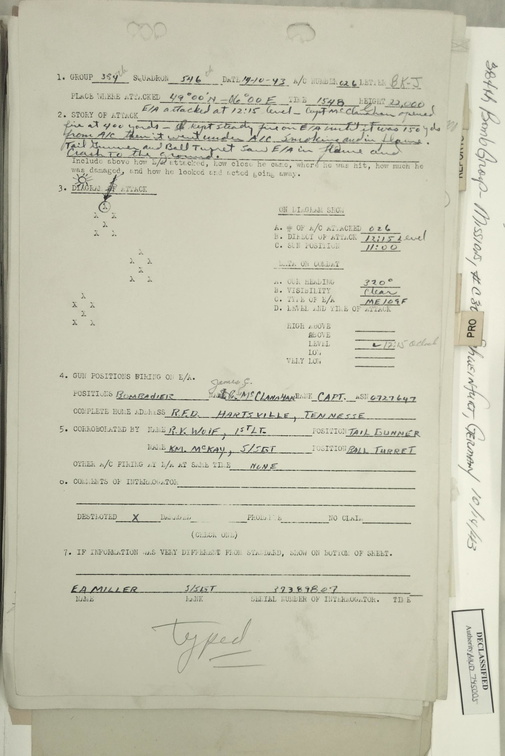 1. GROUP 384th SQUADRON 546 DATE 14-10-43 A/C NUMBER 026 LETTER BK-J
PLACE WHERE ATTACKED 49°00'N - 06°00'E TIME 1548 HEIGHT 22,000
E/A attacked at 12:15 level - Capt McClanahan opened
2. STORY OF ATTACK
fire at 400 yards - kept steady fire on E/A until it was 150 yds
from A/C then it went under A/C smoking and in flame.
Tail Gunner and Ball Turret saw E/A in flame and
crash to the ground.
Include above how E/A attacked, how close he came, where he was hit, how much he
was damaged, and how he looked and acted going away.
3. DIAGRAM OF ATTACK
ON DIAGRAM SHOW
A. # OF A/C ATTACKED 026
B. DIRECT OF ATTACK 12:15 Level
C. SUN POSITION 11:00
DATA ON COMBAT
A. OUR HEADING 320°
B. VISIBILITY Clear
C. TYPE OF E/A ME109F
D. LEVEL AND TIME OF ATTACK
HIGH ABOVE
ABOVE
LEVEL 12:15 O'clock
LOW
VERY LOW
4. GUN POSITIONS FIRING ON E/A.
James G.
POSITIONS BOMBADIER McCLANAHAN RANK CAPT. ASN 0727647
COMPLETE HOME ADDRESS R.F.D. HARTSVILLE, TENNESSE
5. CORROBORATED BY NAME R.V. WOLF, 1ST LT. POSITION TAIL GUNNER
NAME KM. MCKAY, S/SGT POSITION BALL TURRET
OTHER A/C FIRING AT E/A AT SAME TIME NONE
6. COMMENTS OF INTERROGATOR
DESTROYED X DAMAGED PROBABLE NO CLAIM
(CHECK ONE)
7. IF INFORMATION WAS VERY DIFFERENT FROM STANDARD, SHOW ON BOTTOM OF SHEET.
EA MILLER S/SGT
NAME RANK SERIAL NUMBER OF INTERROGATOR. TIME
typed
384th Bomb Group - Mission, Schweinfurt, Germany 10/14/43
PRO
DECLASSIFIED
Authority